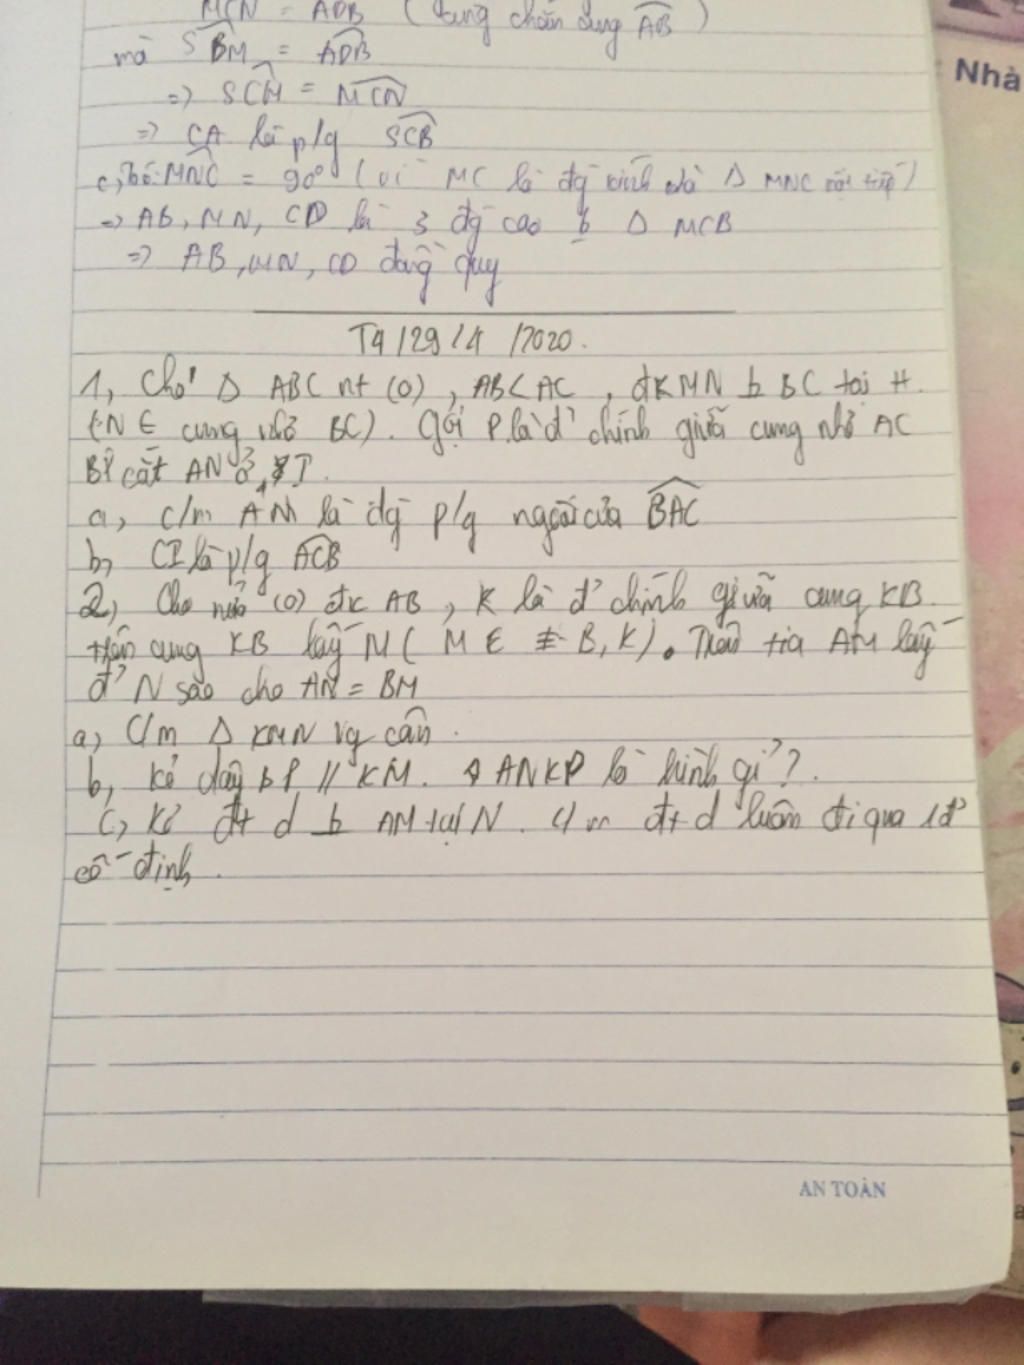 MCN = ADB (cùng chắn cung AB)
mà SBM = ADB
=> SCM = MCN
=> CA là p/g SCB
c, Có: MNC = 90° (vì MC là đg kính mà Δ MNC nội tiếp)
=> AB, MN, CD là 3 đg cao Δ MCB
=> AB, MN, CD đồng quy
T4/29/4/2020.
1, Cho Δ ABC nt (O), AB < AC, đk MN ⊥ BC tại H.
(N ∈ cung nhỏ BC). Gọi P là đ' chính giữa cung nhỏ AC
BP cắt AN ở I.
a, c/m AM là đg p/g ngoài của BAC
b, CI là p/g ACB
2, Cho nửa (O) đk AB, K là đ' chính giữa cung KB.
trên cung KB lấy M (M ≠ B, K). Trên tia AM lấy
đ' N sao cho AN = BM
a, C/m Δ KMN vg cân.
b, Kẻ dây BP // KM. ANKP là hình gì?.
c, Kẻ đt d ⊥ AM tại N. C/m đt d luôn đi qua 1 đ'
cố định.
AN TOÀN
Nhà